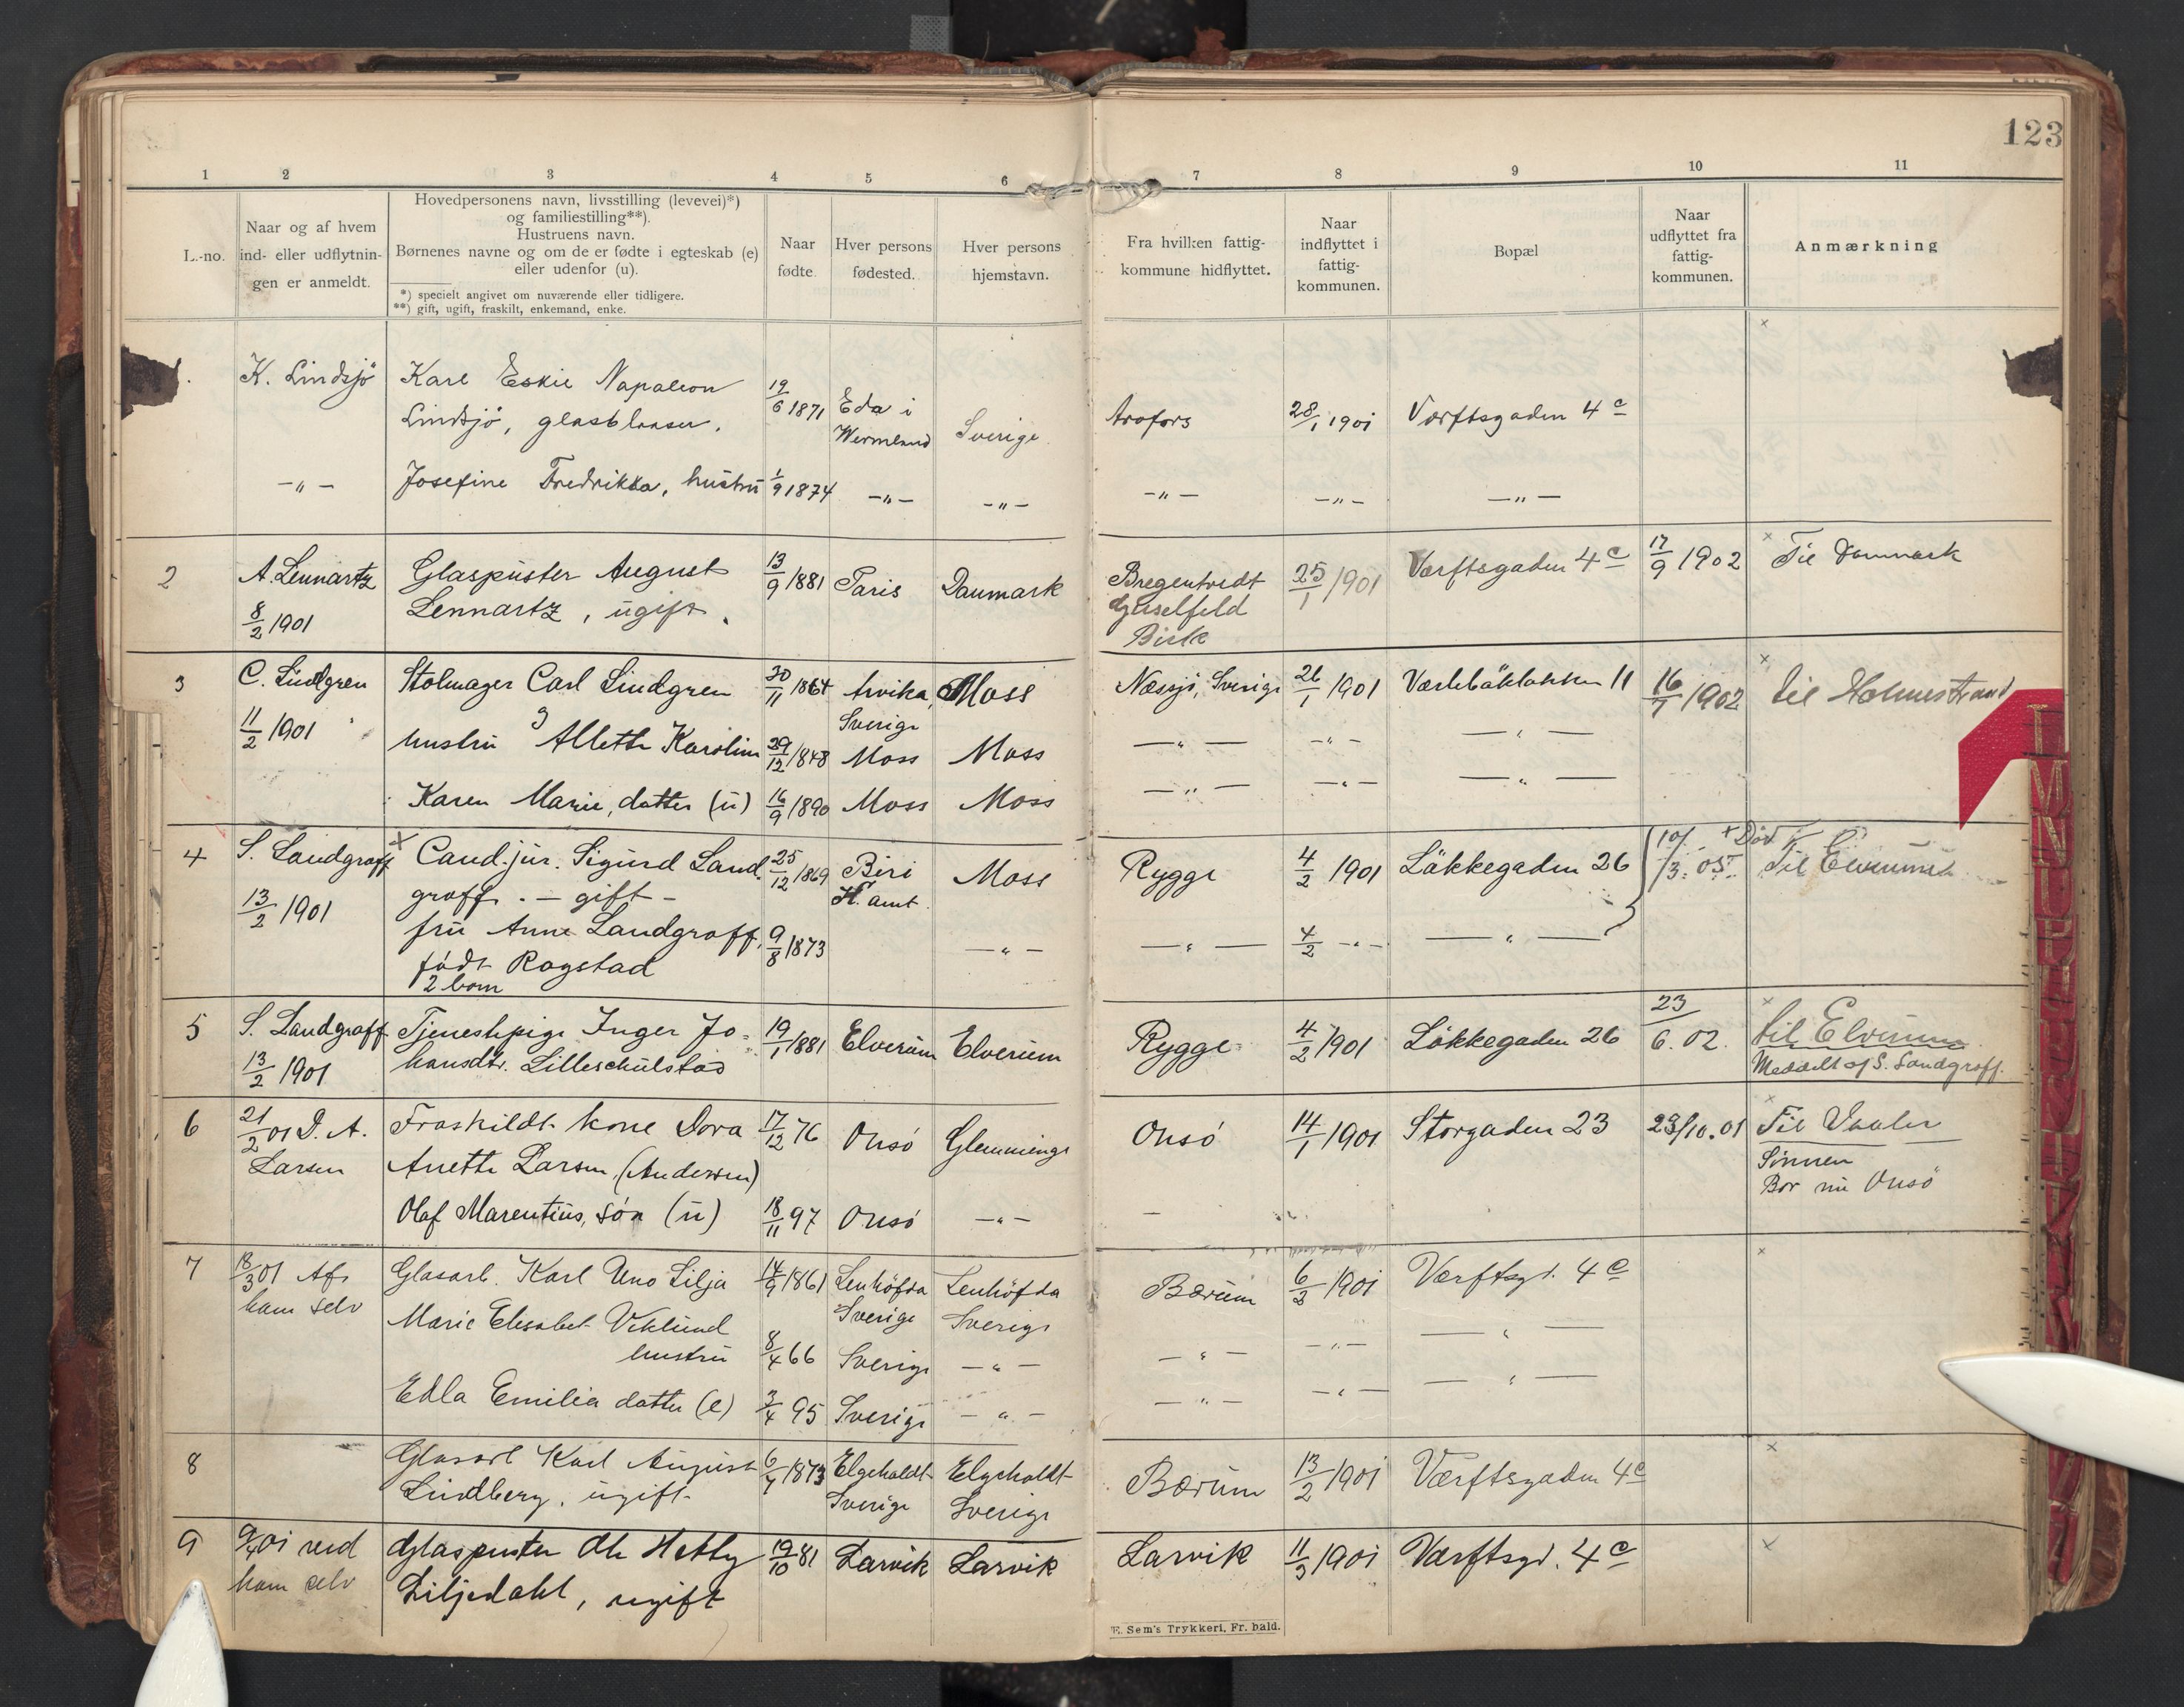 123
1 2 3 4 5 6 7 8 9 10 11
L.-no.
Naar og af hvem
ind- eller udflytnin-
gen er anmeldt.
Hovedpersonens navn, livsstilling (levevei)*)
og familiestilling**).
Hustruens navn.
Børnenes navne og om de er fødte i egteskab (e)
eller udenfor (u).
*) specielt angivet om nuværende eller tidligere.
**) gift, ugift, fraskilt, enkemand, enke.
Naar
fødte.
Hver persons
fødested.
Hver persons
hjemstavn.
Fra hvilken fattig-
kommune hidflyttet.
Naar
indflyttet i
fattig-
kommunen.
Bopæl
Naar
udflyttet fra
fattig-
kommunen.
Anmærkning
K. Lindsjö Karl Eskil Napoleon 19/6 1871 Eda i
Lindsjö, glasblaaser. Wermland Sverige Arafors 28/1 1901 Værftsgaden 4 c
—"— Josefine Fredrikka, hustru 1/9 1874 —"— —"— —"— —"— —"—
2 A. Lennartz Glaspuster August 13/9 1881 Paris Danmark Bregentvedt 25/1 1901 Værftsgaden 4 c 17/9 1902 Til Danmark
8/2 1901 Lennartz, ugift. Gisselfeld
Birk
3 C. Lindgren Stolmager Carl Lindgren 30/11 1864 Arvika, Moss Næssjö, Sverige 26/1 1901 11 16/7 1902 til Holmestrand
11/2 1901 Sverige
hustru Allette Karoline 29/12 1848 Moss Moss —"— —"— —"—
Karen Marie, datter (u) 16/9 1890 Moss Moss —"— —"— —"—
4 S. Landgraff x Cand. jur. Sigurd Land- 25/12 1869 Biri Moss Rygge 4/2 1901 Løkkegaden 26 10/3. 05 + Død
13/2 1901 graff. — gift — H. amt. Til Elverum
fru Anna Landgraff, 9/8 1873 —"— —"— 4/2 —"— —"—
født Rogstad
2 barn
5 S. Landgraff Tjenestepige Inger Jo- 19/1 1881 Elverum Elverum Rygge 4/2 1901 Løkkegaden 26 23/6. 02. til Elverum
13/2 1901 hansdtr. Lilleschulstad Meddelt af S. Landgraff.
6 21/2 01 D. A. Fraskildt kone Dora 17/12 76 Onsö Glemminge Onsö 14/1 1901 Storgaden 23 23/10. 01 Til Vaaler
Larsen Anette Larsen (Andersen) Sönnen
Olaf Marentius, sön (u) 18/11 97 Onsö —"— Bor nu Onsö
7 18/3 01 Af Glasarb. Karl Uno Lilja 14/9 1861 Lenhöfda Lenhöfda Bærum 6/2 1901 Værftsgd. 4 c
ham selv Marie Elisabet Viklund Sverige Sverige
hustru 8/4 66 Sverige —"— —"— —"— —"—
Edla Emilia datter (e) 3/4 95 Sverige —"— —"— —"— —"—
8 Glasarb Karl August 6/7 1873 Elgehaldt Elgehaldt Bærum 13/2 1901 Værftsgaden 4 c
Lindberg, ugift Sverige Sverige
9 9/4 01 ved Glaspuster Ole Hetly 19/10 81 Larvik Larvik Larvik 11/3 1901 Værftsgd. 4 c
ham selv Liljedahl, ugift
E. Sem's Trykkeri, Fr. hald.